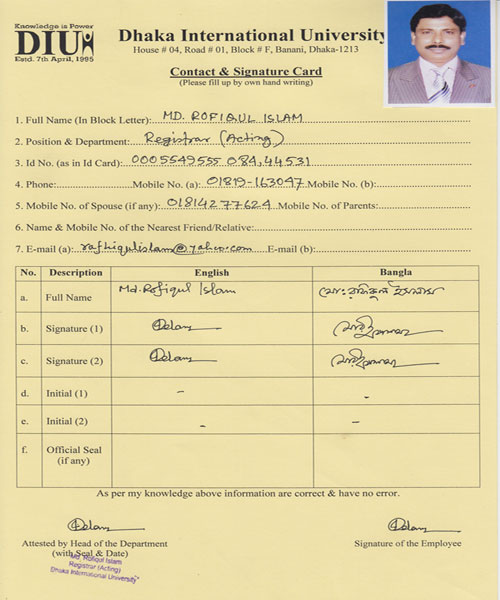 Knowledge is Power
DIU
Estd. 7th April, 1995
Dhaka International University
House # 04, Road # 01, Block # F, Banani, Dhaka-1213
Contact & Signature Card
(Please fill up by own hand writing)
1. Full Name (In Block Letter): MD. ROFIQUL ISLAM
2. Position & Department: Registrar (Acting)
3. Id No. (as in Id Card): 0005549555 084,44531
4. Phone: Mobile No. (a): 01819-163047 Mobile No. (b):
5. Mobile No. of Spouse (if any): 01814277624 Mobile No. of Parents:
6. Name & Mobile No. of the Nearest Friend/Relative:
7. E-mail (a): rafhiqulislam@yahoo.com E-mail (b):
No. Description English Bangla
a. Full Name Md. Rofiqul Islam মোঃ রফিকুল ইসলাম
b. Signature (1)
c. Signature (2)
d. Initial (1) - -
e. Initial (2) - -
f. Official Seal
(if any)
As per my knowledge above information are correct & have no error.
Attested by Head of the Department
(with Seal & Date)
Signature of the Employee
Md. Rofiqul Islam
Registrar (Acting)
Dhaka International University